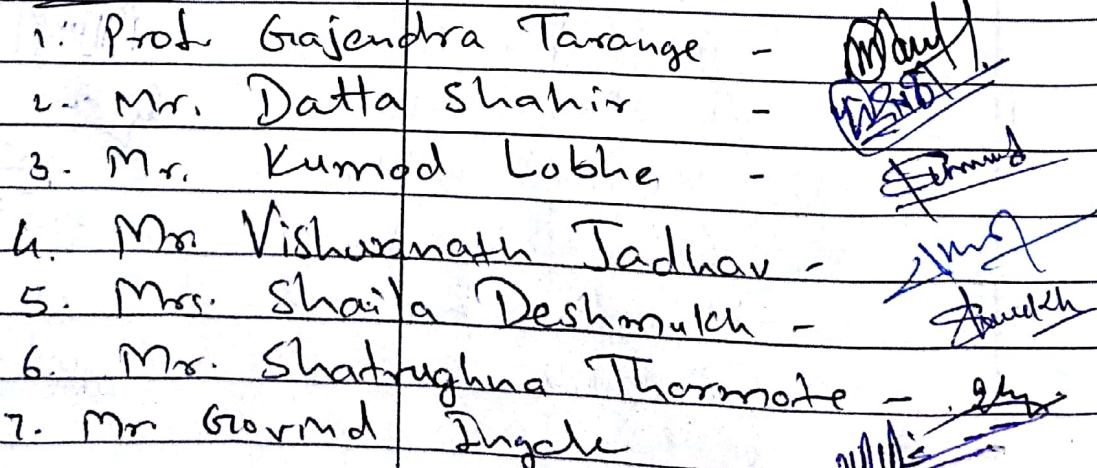 1. Prof Gajendra Tarange -
2. Mr. Datta Shahir -
3. Mr. Kumod Lobhe -
4. Mr Vishwanath Jadhav -
5. Mrs. Shaila Deshmukh -
6. Mr. Shatrughna Thormote -
7. Mr Govind Ingale